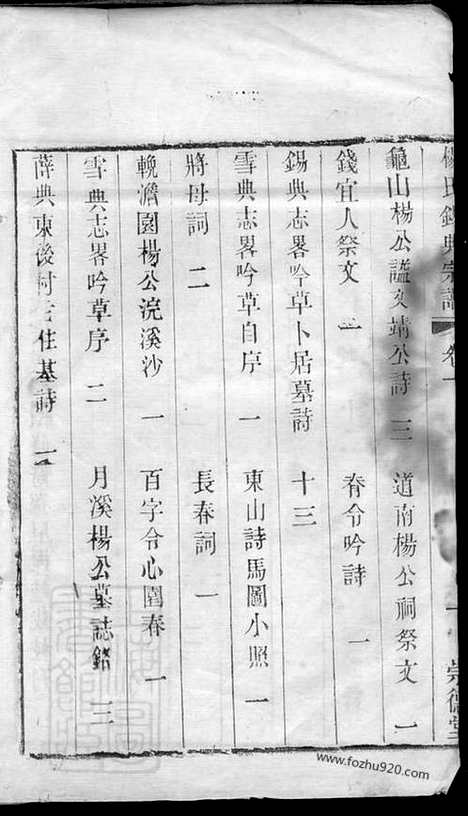 楊氏錫典宗譜 卷一 崇德堂
龜山楊公諡文靖公詩 三 道南楊公祠祭文 一
錢宜人祭文 一 脊令吟詩 一
錫典志畧吟草卜居墓詩 十三
雪典志畧吟草自序 一 東山詩馬圖小照 一
將母詞 二 長春詞 一
輓澹園楊公浣溪沙 一 百字令心園春 一
雪典志畧吟草序 二 月溪楊公墓誌銘 三
薛典東後村三住基詩 一
www.fozhu920.com